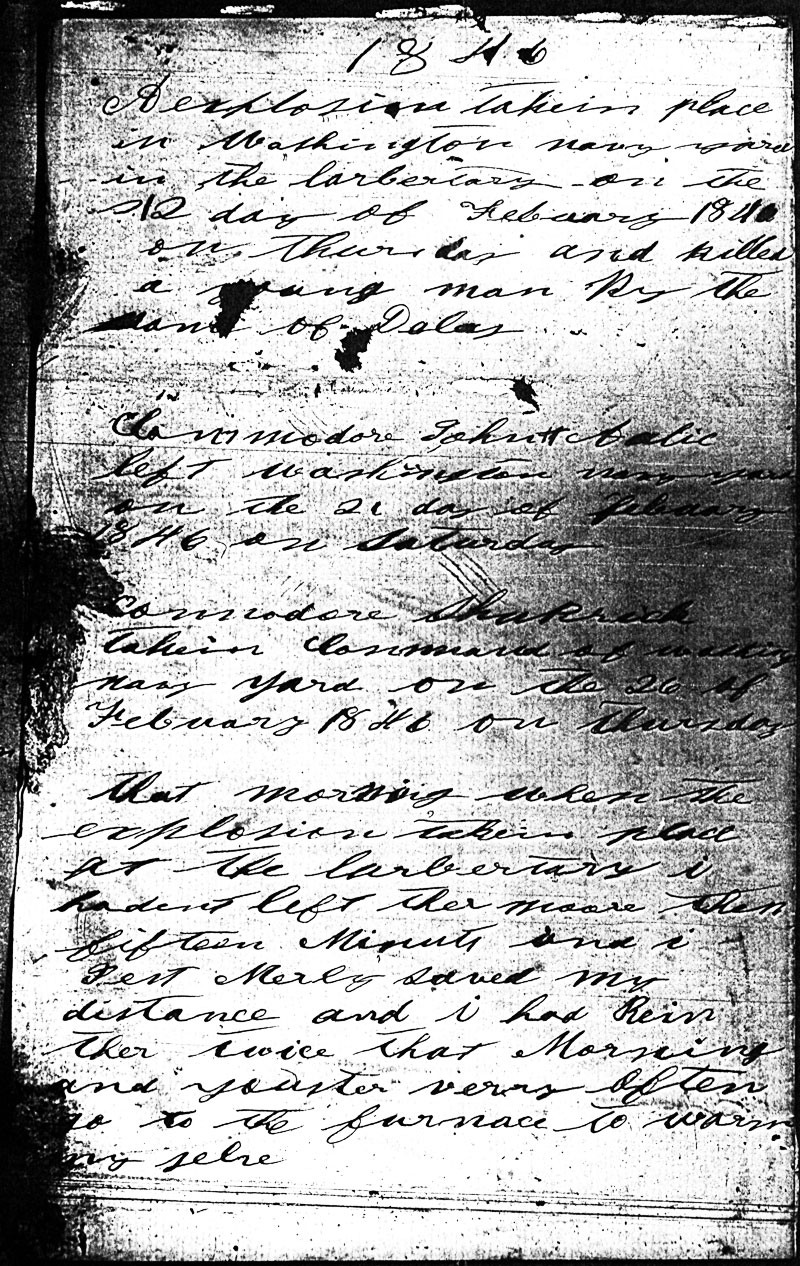 1846
A explosion takein place
in Washington navy yard
in the larbertary on the
12 day of Febuary 1846
on Thursday and killed
a young man By the
name of Delas
Commodore John H Aulic
left washington navy yard
on the 21 day of febuary
1846 on Saturday
Commodore Shubrick
takein Command of
navy yard on the 26 of
Febuary 1846 on thursday
that morning when the
explosion takein place
at the larbertary i
hadent left ther moore then
fifteen Minuts and i
Jest Merly saved my
distance and i had Bein
ther twice that Morning
and youster verry often
go to the furnace to warm
my selve